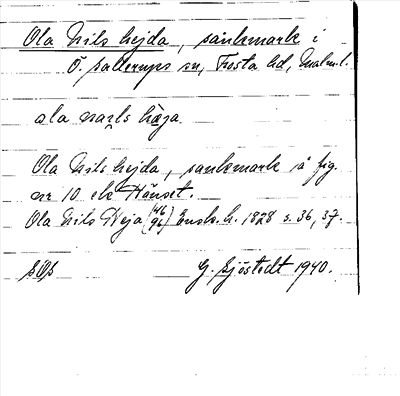 Ola Nils hejda, sankmark i
Ö. Sallerups sn, Frosta hd, Malm.l.
ala nails hæja.
Ola Nils hejda, sankmark å fig.
nr 10 ek Hänset.
Ola Nils Heja (46 96) Ensk.h. 1828 s. 36, 37.
G. Sjöstedt 1940.